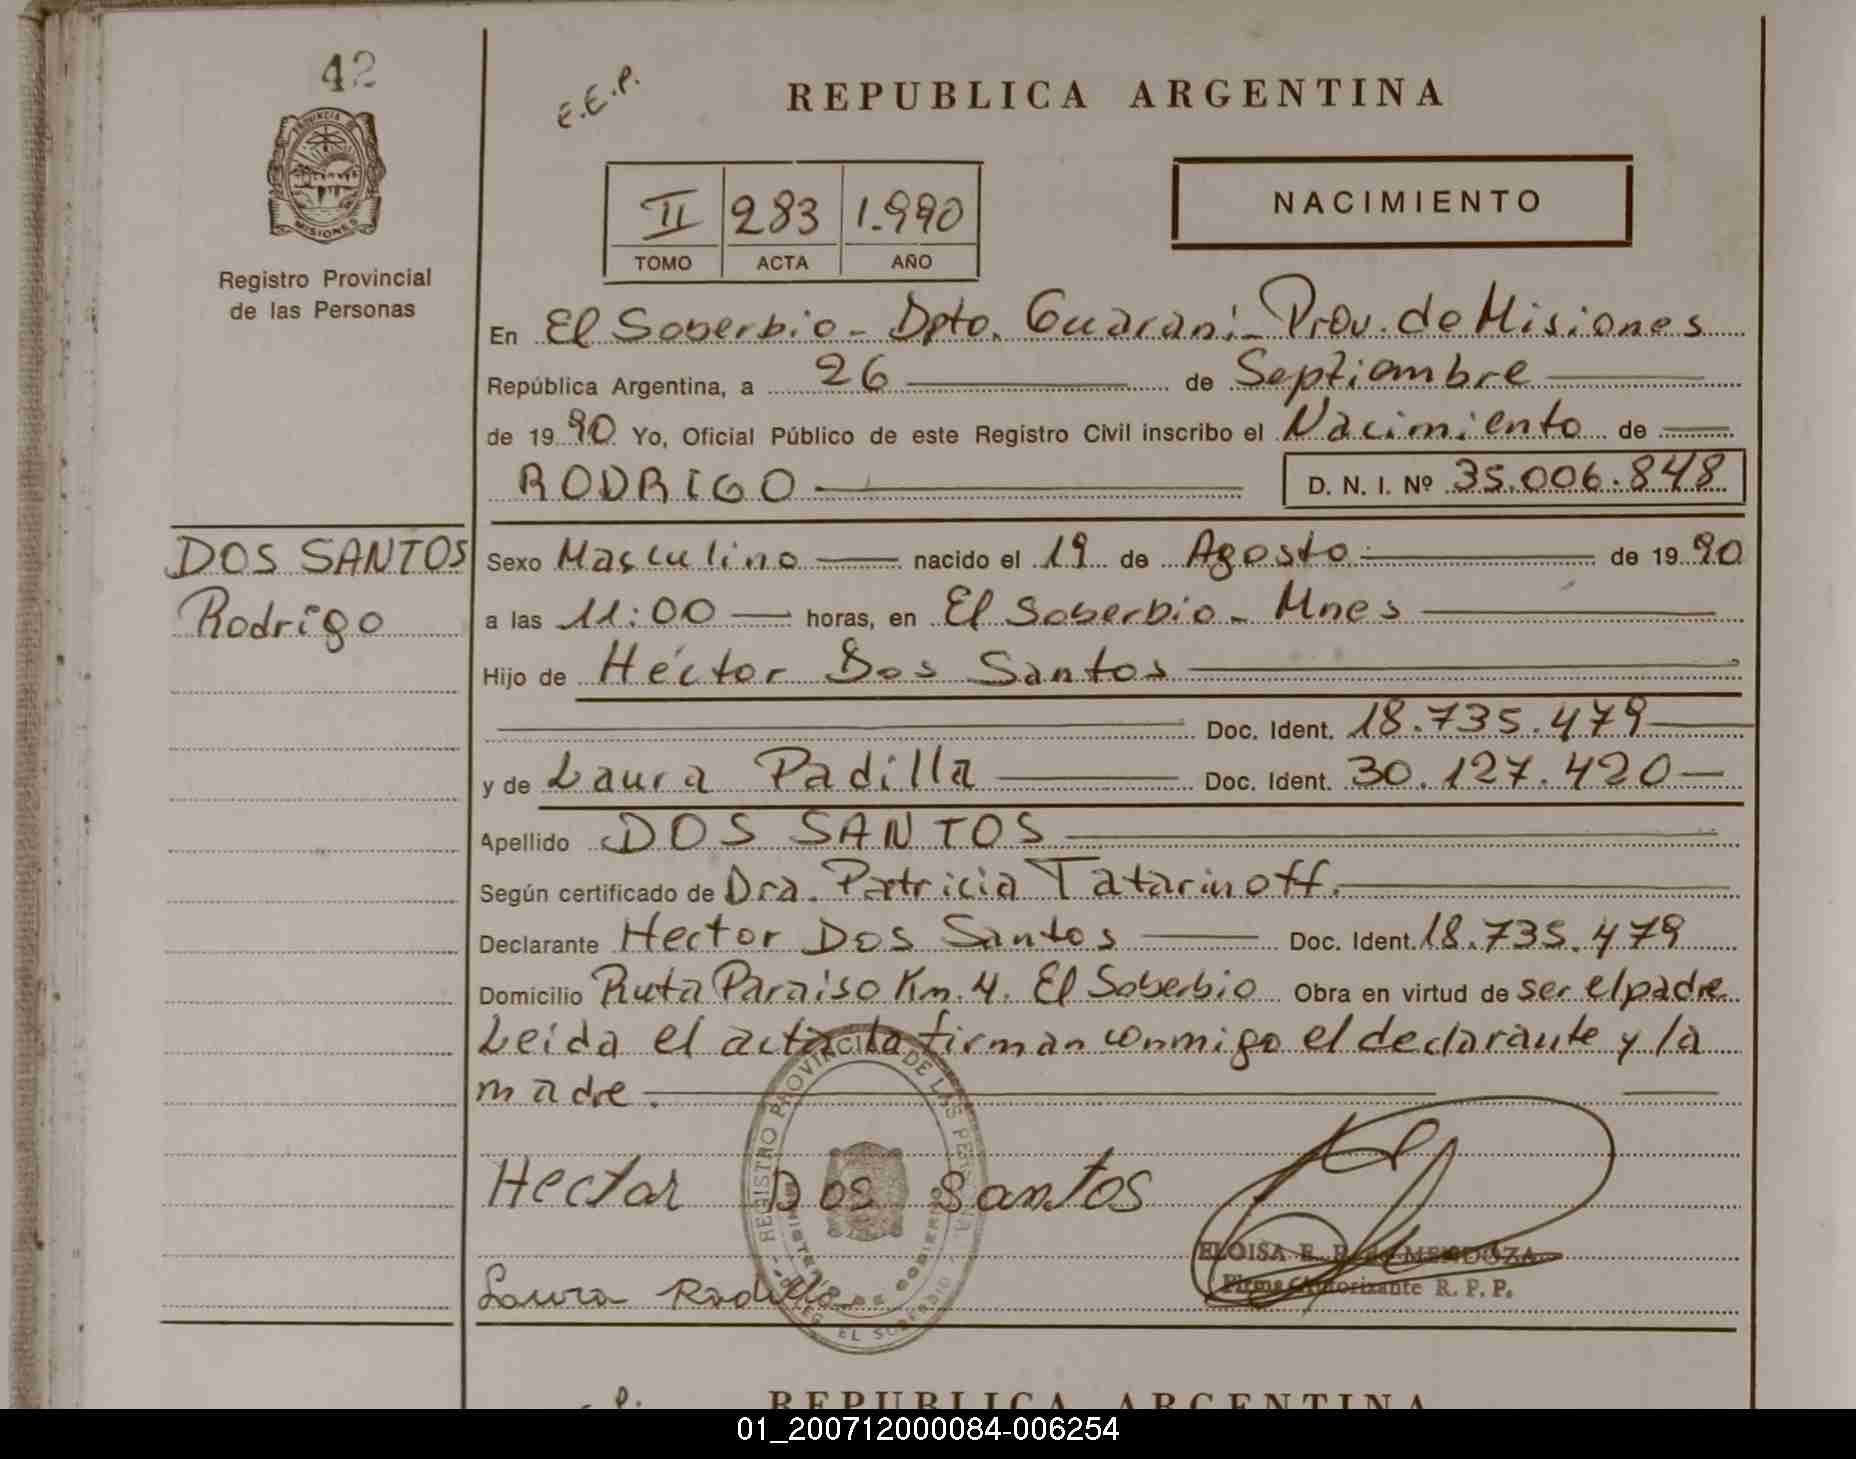 42
E.E.P.
REPUBLICA ARGENTINA
PROVINCIA DE
MISIONES
Registro Provincial
de las Personas
II 283 1.990
TOMO ACTA AÑO
NACIMIENTO
En El Soberbio - Dpto. Guaraní - Prov. de Misiones
República Argentina, a 26 de Septiembre
de 19 90 Yo, Oficial Público de este Registro Civil inscribo el Nacimiento de
RODRIGO D. N. I. Nº 35.006.848
DOS SANTOS
Rodrigo
Sexo Masculino nacido el 19 de Agosto de 19 90
a las 11:00 horas, en El Soberbio - Mnes
Hijo de Héctor Dos Santos
Doc. Ident. 18.735.479
y de Laura Padilla Doc. Ident. 30.127.420
Apellido DOS SANTOS
Según certificado de Dra. Patricia Tatarinoff.
Declarante Hector Dos Santos Doc. Ident. 18.735.479
Domicilio Ruta Paraiso Km. 4. El Soberbio Obra en virtud de ser el padre
Leída el acta la firman conmigo el declarante y la
madre.
REGISTRO PROVINCIAL DE LAS PERSONAS
MINISTERIO DE GOBIERNO
EL SOBERBIO
Hector Dos Santos
ELOISA E. MENDOZA
Firma Autorizante R. P. P.
Laura Padilla
REPUBLICA ARGENTINA
01_200712000084-006254